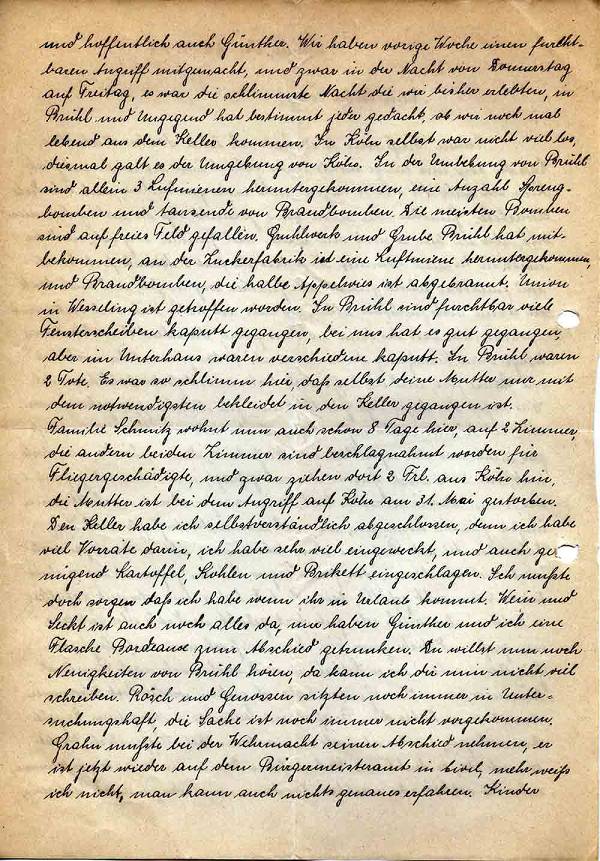 und hoffentlich auch Günther. Wir haben vorige Woche einen furcht-
baren Angriff mitgemacht, und zwar in der Nacht von Donnerstag
auf Freitag, es war die schlimmste Nacht die wir bisher erlebten, in
Brühl und Umgegend hat bestimmt jeder gedacht, ob wir noch mal
lebend aus dem Keller kommen. In Köln selbst war nicht viel los,
diesmal galt es der Umgebung von Köln. In der Umbebung von Brühl
sind allein 3 Lufmienen heruntergekommen, eine Anzahl Spreng-
bomben und tausende von Brandbomben. Die meisten Bomben
sind auf freies Feld gefallen. Gruhlwerk und Grube Brühl hat mit-
bekommen, an der Zuckerfabrik ist eine Luftmiene heruntergekommen,
und Brandbomben, die halbe Appelwies ist abgebrannt. Union
in Wesseling ist getroffen worden. In Brühl sind furchtbar viele
Fensterscheiben kaputt gegangen, bei uns hat es gut gegangen,
aber im Unterhaus waren verschiedene kaputt. In Brühl waren
2 Tote. Es war so schlimm hier, daß selbst deine Mutter nur mit
dem notwendigsten bekleidet in den Keller gegangen ist.
Familie Schmitz wohnt nun auch schon 8 Tage hier, auf 2 Zimmer,
die andern beiden Zimmer sind beschlagnahmt worden für
Fliegergeschädigte, und zwar ziehen dort 2 Frl. aus Köln hin,
die Mutter ist bei dem Angriff auf Köln am 31. Mai gestorben.
Den Keller habe ich selbstverständlich abgeschlossen, denn ich habe
viel Vorräte darin, ich habe sehr viel eingeweckt, und auch ge
nügend Kartoffel, Kohlen und Brikett eingeschlagen. Ich mußte
doch sorgen daß ich habe wenn ihr in Urlaub kommt. Wein und
Seckt ist auch noch alles da, nur haben Günther und ich eine
Flasche Bordeause zum Abschied getrunken. Du willst nun noch
Neuigkeiten von Brühl hören, da kann ich dir nun nicht viel
schreiben. Rösch und Genossen sitzten noch immer in Unter-
suchungshaft, die Sache ist noch immer nicht vorgekommen.
Grahn mußte bei der Wehrmacht seinen Abschied nehmen, er
ist jetzt wieder auf dem Bürgermeisteramt in Civil, mehr weiß
ich nicht, man kann auch nichts genaues erfahren. Kinder